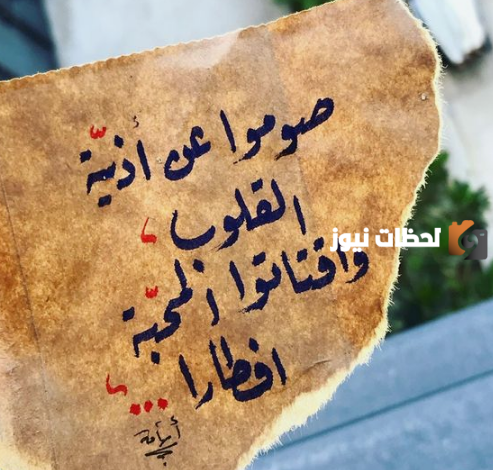 صوموا عن أذيّة
القلوب،
واقتاتوا المحبّة
افطارا...،
لحظات نيوز